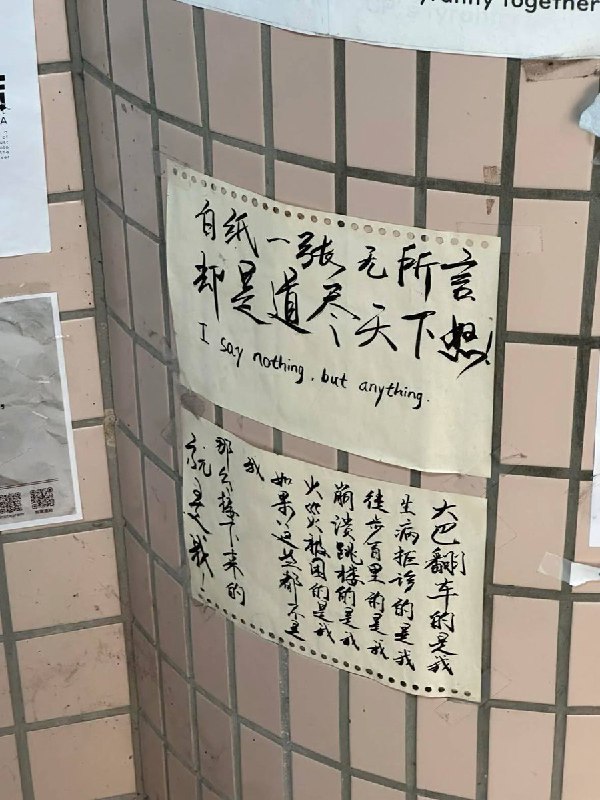 Together
A
白纸一张无所言
却是道尽天下
I say nothing, but anything.
大巴翻车的是我
生病拒诊的是我
徒步百里的是我
崩溃跳楼的是我
火灾被困的是我
如果这些都不是
我
那么接下来的
就是我!